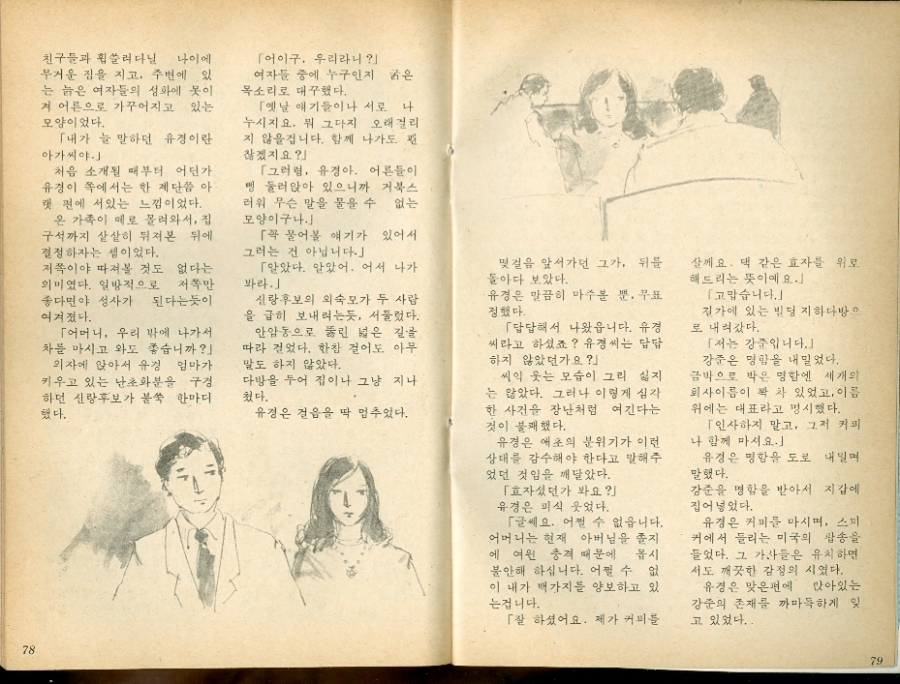 친구들과 휩쓸려다닐 나이에
무거운 짐을 지고, 주변에 있
는 늙은 여자들의 성화에 못이
겨 어른으로 가꾸어지고 있는
모양이었다.
「내가 늘 말하던 유경이란
아가씨야.」
처음 소개될 때부터 어딘가
유경이 쪽에서는 한 계단쯤 아
랫 편에 서있는 느낌이었다.
온 가족이 떼로 몰려와서, 집
구석까지 살살히 뒤져본 뒤에
결정하자는 셈이었다.
저쪽이야 따져볼 것도 없다는
의미였다. 일방적으로 저쪽만
좋다면야 성사가 된다는듯이
여겨졌다.
「어머니, 우리 밖에 나가서
차를 마시고 와도 좋습니까?」
의자에 앉아서 유경 엄마가
키우고 있는 난초화분을 구경
하던 신랑후보가 불쑥 한마디
했다.
「어이구, 우리라니?」
여자들 중에 누구인지 굵은
목소리로 대꾸했다.
「옛날 얘기들이나 서로 나
누시지요. 뭐 그다지 오래걸리
지 않을겁니다. 함께 나가도 괜
찮겠지요?」
「그러럼, 유경아. 어른들이
삥 둘러앉아 있으니까 거북스
러워 무슨 말을 물을 수 없는
모양이구나.」
「꼭 물어볼 얘기가 있어서
그러는 건 아닙니다.」
「알았다. 알았어. 어서 나가
봐라.」
신랑후보의 외숙모가 두 사람
을 급히 보내려는듯, 서둘렀다.
안암동으로 뚫린 넓은 길을
따라 걸었다. 한참 걸어도 아무
말도 하지 않았다.
다방을 두어 집이나 그냥 지나
쳤다.
유경은 걸음을 딱 멈추었다.
78
몇걸음 앞서가던 그가, 뒤를
돌아다 보았다.
유경은 말끔히 마주볼 뿐, 무표
정했다.
「답답해서 나왔읍니다. 유경
씨라고 하셨죠? 유경씨는 답답
하지 않았던가요?」
씨익 웃는 모습이 그리 싫지
는 않았다. 그러나 이렇게 심각
한 사건을 장난처럼 여긴다는
것이 불쾌했다.
유경은 애초의 분위기가 이런
상대를 감수해야 한다고 말해주
었던 것임을 깨달았다.
「효자셨던가 봐요?」
유경은 피식 웃었다.
「글쎄요. 어쩔 수 없읍니다.
어머니는 현재 아버님을 졸지
에 여윈 충격 때문에 몹시
불안해 하십니다. 어쩔 수 없
이 내가 백가지를 양보하고 있
는겁니다.
「잘 하셨어요. 제가 커피를
살께요. 댁 같은 효자를 위로
해드리는 뜻이예요.」
「고맙습니다.」
길가에 있는 빌딩 지하다방으
로 내려갔다.
「저는 강준입니다.」
강준은 명함을 내밀었다.
금박으로 박은 명함엔 세개의
회사이름이 꽉 차 있었고, 이름
위에는 대표라고 명시했다.
「인사하지 말고, 그저 커피
나 함께 마셔요.」
유경은 명함을 도로 내밀며
말했다.
강준을 명함을 받아서 지갑에
집어넣었다.
유경은 커피를 마시며, 스피
커에서 들리는 미국의 팝송을
들었다. 그 가사들은 유치하면
서도 깨끗한 감정의 시였다.
유경은 맞은편에 앉아있는
강준의 존재를 까마득하게 잊
고 있었다..
79